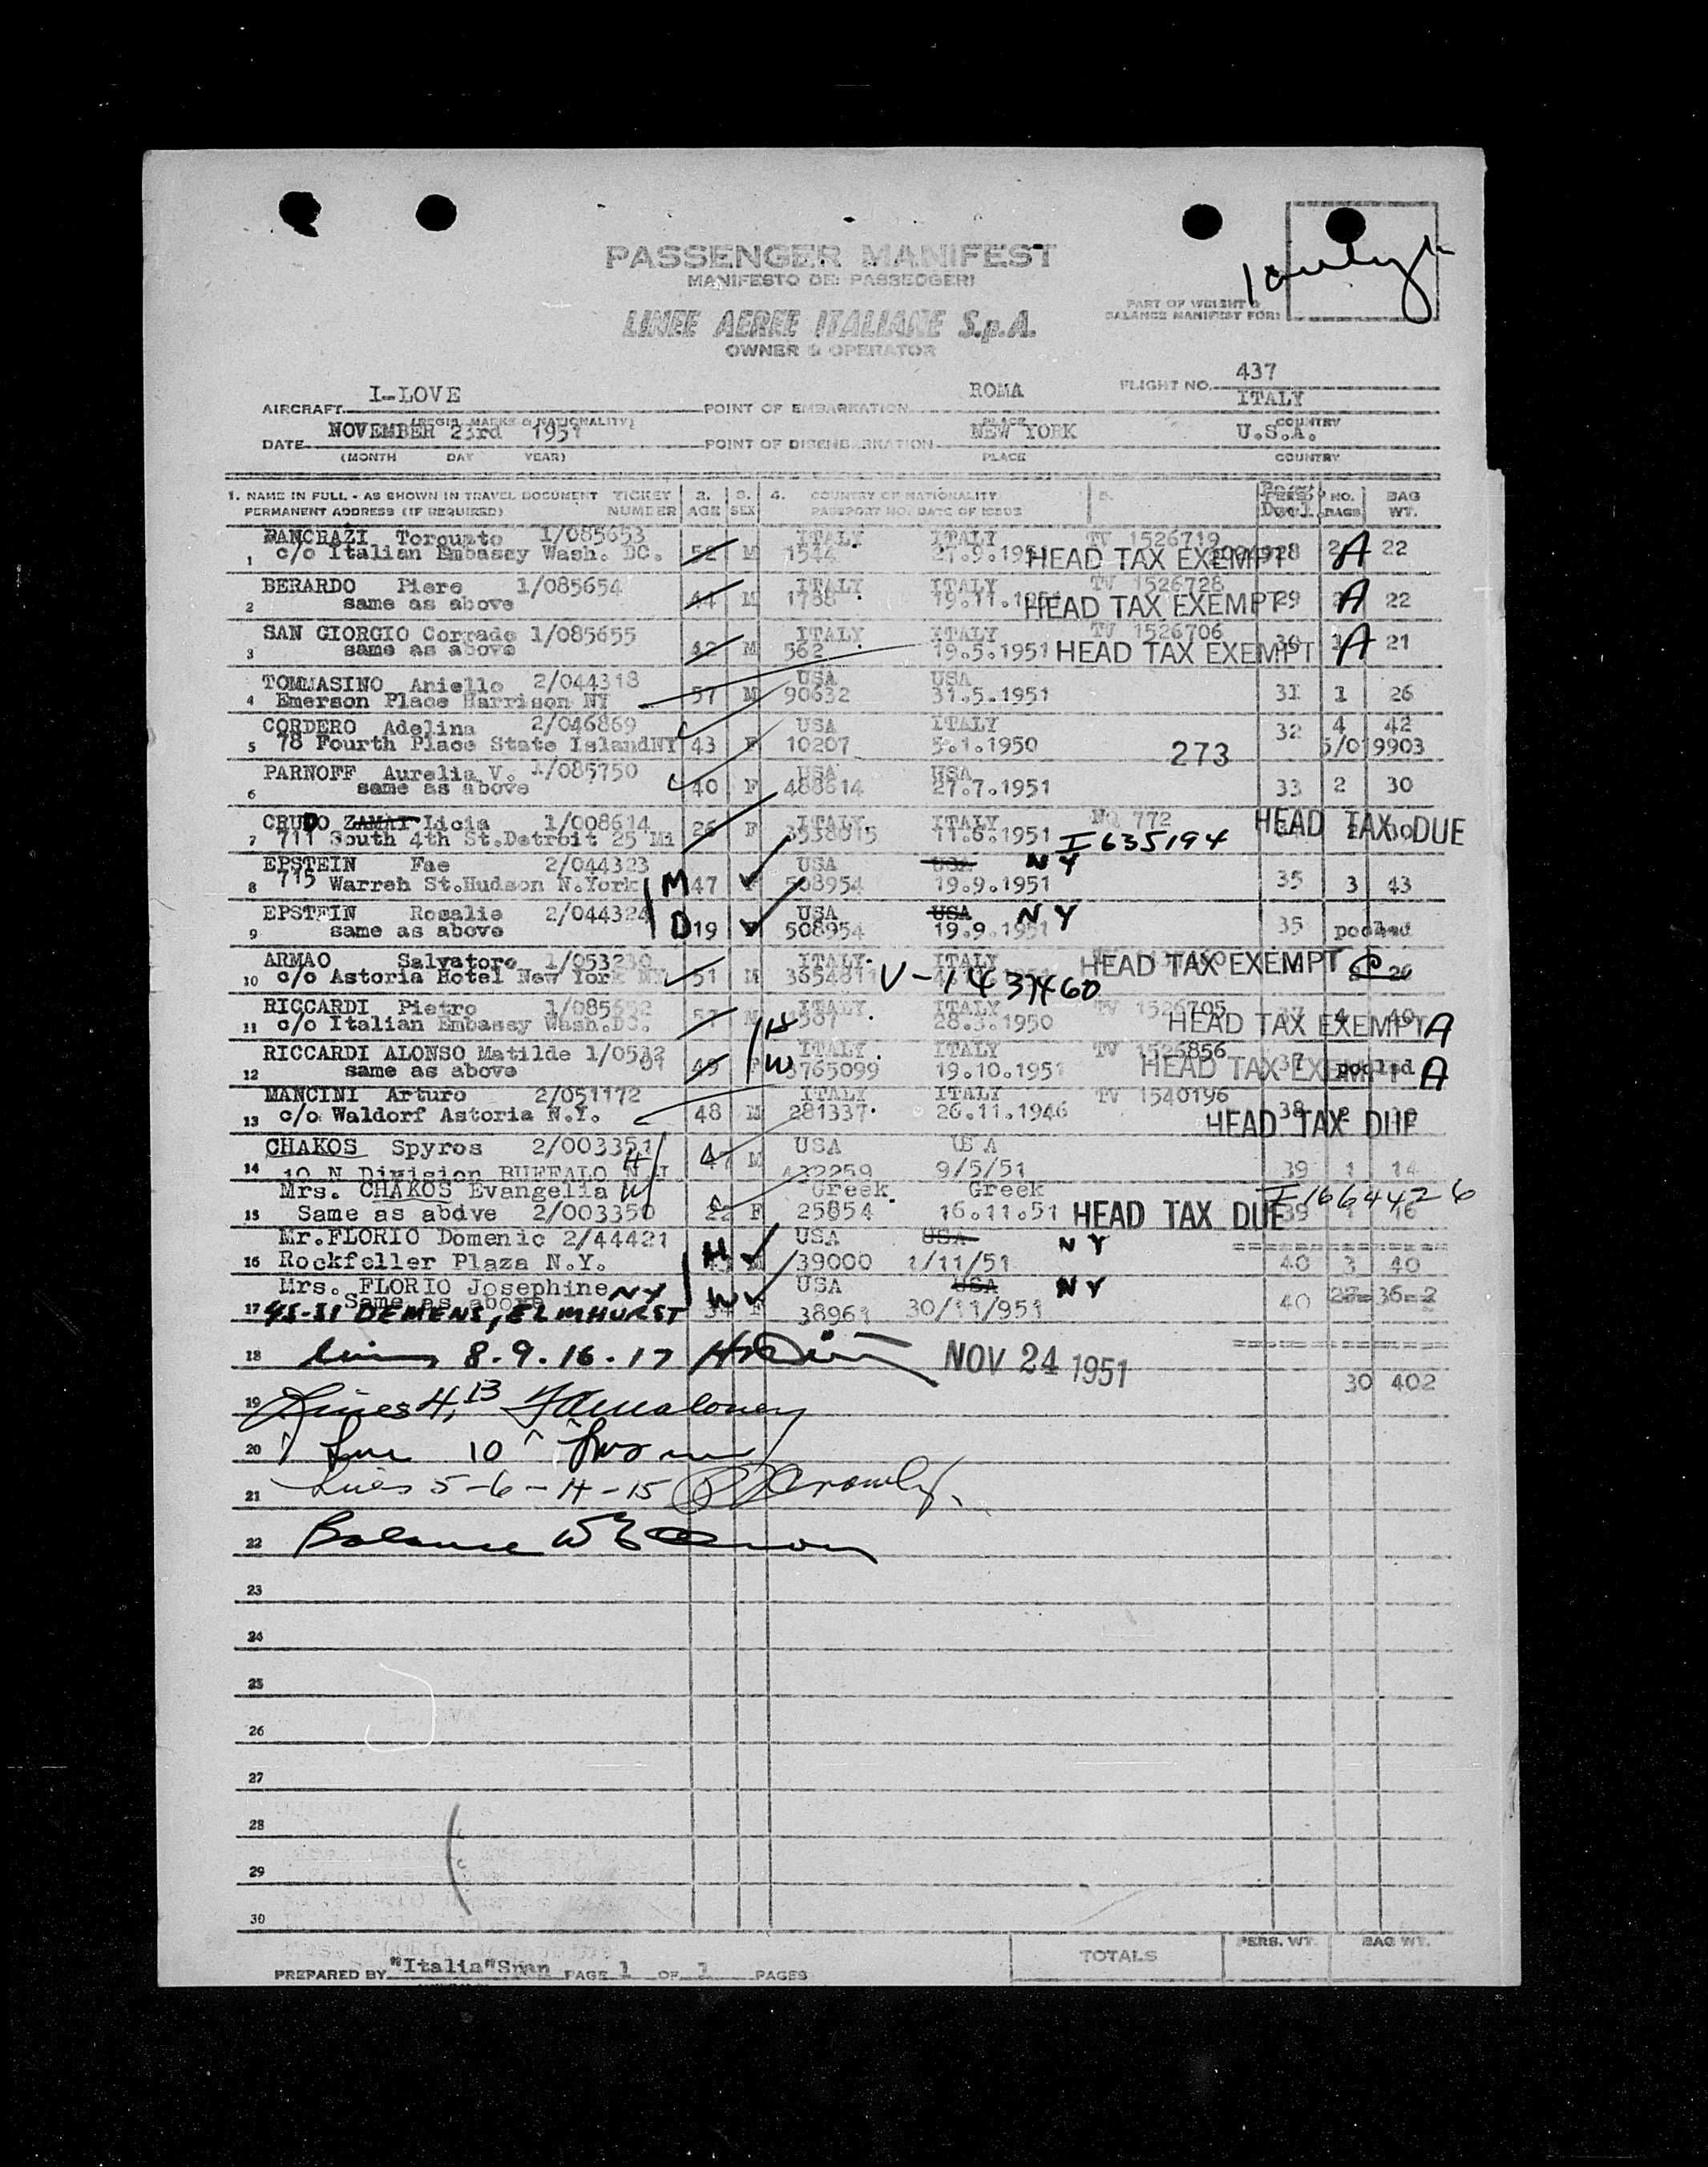 PASSENGER MANIFEST
MANIFESTO DEI PASSEGGERI
PART OF WEIGHT &
BALANCE MANIFEST FOR:
LINEE AEREE ITALIANE S.p.A.
OWNER & OPERATOR
AIRCRAFT I-LOVE POINT OF EMBARKATION ROMA FLIGHT NO. 437
ITALY
(REGIS. MARKS & NATIONALITY) PLACE COUNTRY
DATE NOVEMBER 23rd 1951 POINT OF DISEMBARKATION NEW YORK U.S.A.
(MONTH DAY YEAR) PLACE COUNTRY
1. NAME IN FULL - AS SHOWN IN TRAVEL DOCUMENT TICKET 2. 3. 4. COUNTRY OF NATIONALITY 5. NO. BAG
PERMANENT ADDRESS (IF REQUIRED) NUMBER AGE SEX PASSPORT NO. DATE OF ISSUE BAGS WT.
PANCRAZI Torquato 1/085653 ITALY ITALY TV 1526719
1 c/o Italian Embassy Wash. DC. 52 M 1544 27.9.1951 HEAD TAX EXEMPT 28 2 A 22
BERARDO Piero 1/085654 ITALY ITALY TV 1526728
2 same as above 44 M 1788 19.11.1951 HEAD TAX EXEMPT 29 A 22
SAN GIORGIO Corrado 1/085655 ITALY ITALY TV 1526706
3 same as above 42 M 562 19.5.1951 HEAD TAX EXEMPT 30 1 A 21
TOMMASINO Aniello 2/044318 USA USA
4 Emerson Place Harrison NY 57 M 90632 31.5.1951 31 1 26
CORDERO Adelina 2/046869 USA ITALY 32 4 42
5 78 Fourth Place State IslandNY 43 F 10207 5.1.1950 273 5/019903
PARNOFF Aurelia V. 1/085750 USA USA
6 same as above 40 F 488614 27.7.1951 33 2 30
CRUDO ZAMAI Licia 1/008614 ITALY ITALY NQ 772
7 711 South 4th St.Detroit 25 Mi 26 F 3538015 11.6.1951 I 635194 HEAD TAX DUE 2 30
EPSTEIN Fae 2/044323 USA USA NY
8 715 Warreh St.Hudson N.York M 47 F 508954 19.9.1951 35 3 43
EPSTEIN Rosalie 2/044324 USA USA NY
9 same as above D 19 508954 19.9.1951 35 pooled
ARMAO Salvatore 1/053230 ITALY ITALY
10 c/o Astoria Hotel New York NY 51 M 3654811 V-1437460 HEAD TAX EXEMPT 26
RICCARDI Pietro 1/085652 ITALY ITALY TV 1526705
11 c/o Italian Embassy Wash.DC. 57 M H 1507 28.3.1950 HEAD TAX EXEMPT 37 4 40 A
RICCARDI ALONSO Matilde 1/0532 ITALY ITALY TV 1526856
12 same as above 01 49 F W 3765099 19.10.1951 HEAD TAX EXEMPT 37 pooled A
MANCINI Arturo 2/051172 ITALY ITALY TV 1540196
13 c/o Waldorf Astoria N.Y. 48 M 281337 26.11.1946 HEAD TAX DUE 38
CHAKOS Spyros 2/003351 H USA USA
14 10 N Division BUFFALO N.J M 432259 9/5/51 39 1 14
Mrs. CHAKOS Evangelia W Greek Greek I 1664426
15 Same as abdve 2/003350 22 F 25854 16.11.51 HEAD TAX DUE 39 1 16
Mr.FLORIO Domenic 2/44421 USA USA NY
16 Rockfeller Plaza N.Y. H M 39000 1/11/51 40 3 40
Mrs. FLORIO Josephine NY USA USA NY
Same as above
17 45-31 DEMENS, ELMHURST W 34 F 38961 30/11/951 40
18 8-9-16-17 NOV 24 1951
30 402
19 Lines 4, 13
20 Line 10
21 Lines 5-6-14-15
22 Balance
23
24
25
26
27
28
29
30
TOTALS PERS. WT. BAG WT.
PREPARED BY "Italia"Span PAGE 1 OF 1 PAGES